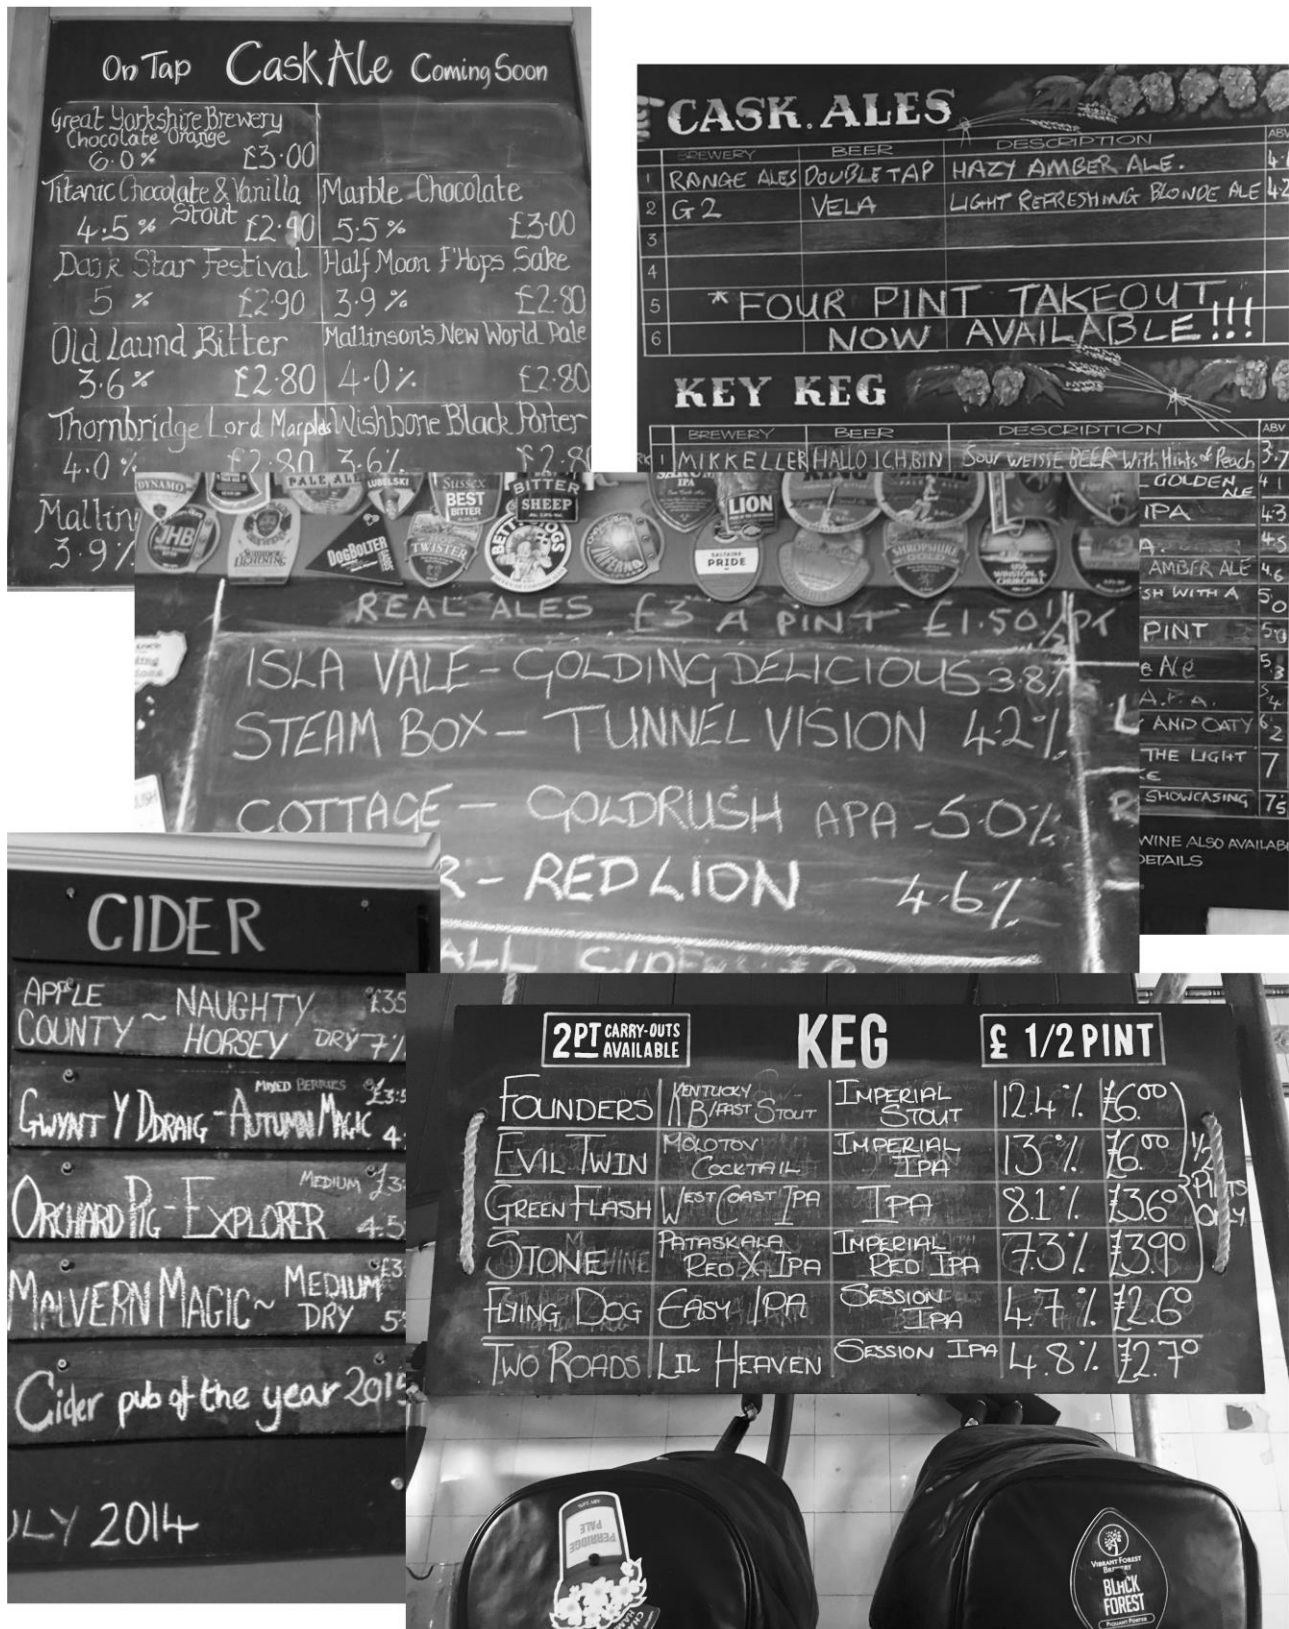 On Tap Cask Ale Coming Soon
Great Yorkshire Brewery
Chocolate Orange
6.0% £3.00
Titanic Chocolate & Vanilla
Stout
4.5% £2.90
Dark Star Festival
5 % £2.90
Old Laund Bitter
3.6% £2.80
Thornbridge Lord Marples
4.0% £2.80
Mallin
3.9%
Marble Chocolate
5.5% £3.00
Half Moon F'Hops Sake
3.9% £2.80
Mallinson's New World Pale
4.0% £2.80
Wishbone Black Porter
3.6% £2.80
CASK. ALES
BREWERY BEER DESCRIPTION ABV
1 RANGE ALES DOUBLE TAP HAZY AMBER ALE.
2 G2 VELA LIGHT REFRESHING BLONDE ALE 4.2
3
4
5 *FOUR PINT TAKEOUT
6 NOW AVAILABLE!!!
KEY KEG
BREWERY BEER DESCRIPTION ABV
1 MIKKELLER HALLO ICH BIN Sour WEISSE BEER With Hints of Peach 3.7
GOLDEN ALE 4.1
IPA 4.3
A. 4.5
AMBER ALE 4.6
SH WITH A 5.0
PINT
e Ale 5.3
A.P.A. 5.4
AND OATY 6.2
THE LIGHT 7
SHOWCASING 7.5
WINE ALSO AVAILAB
DETAILS
DYNAMO
PALE ALE
LUBELSKI
Sussex
BEST
BITTER
BITTER
SHEEP
IPA
LION
KING
JHB
LIGHTNING
DOGBOLTER
TWISTER
INFERNO
SALTAIRE
PRIDE
SHROPSHIRE
GOLD
WINSTON S.
CHURCHILL
REAL ALES £3 A PINT £1.50 1/2 PT
ISLA VALE - GOLDING DELICIOUS 3.8%
STEAM BOX - TUNNEL VISION 4.2%
COTTAGE - GOLDRUSH APA - 5.0%
R - RED LION 4.6%
ALL CIDERS
CIDER
APPLE
COUNTY ~ NAUGHTY
HORSEY DRY 7%
£3.5
MIXED BERRIES
GWYNT Y DDRAIG - AUTUMN MAGIC 4.
MEDIUM £3
ORCHARD PIG - EXPLORER 4.5
£3
MALVERN MAGIC ~ MEDIUM
DRY 5
Cider pub of the year 2015
JLY 2014
2PT CARRY-OUTS
AVAILABLE
KEG
£ 1/2 PINT
FOUNDERS KENTUCKY B/FAST STOUT IMPERIAL STOUT 12.4% £6.00
EVIL TWIN MOLOTOV COCKTAIL IMPERIAL IPA 13% £6.00
GREEN FLASH WEST COAST IPA IPA 8.1% £3.60
STONE PATASKALA RED X IPA IMPERIAL RED IPA 7.3% £3.90
1/2 PINTS ONLY
FLYING DOG EASY IPA SESSION IPA 4.7% £2.60
TWO ROADS LIL HEAVEN SESSION IPA 4.8% £2.70
PERRIDGE
PALE
VIBRANT FOREST
BREWERY
BLACK
FOREST